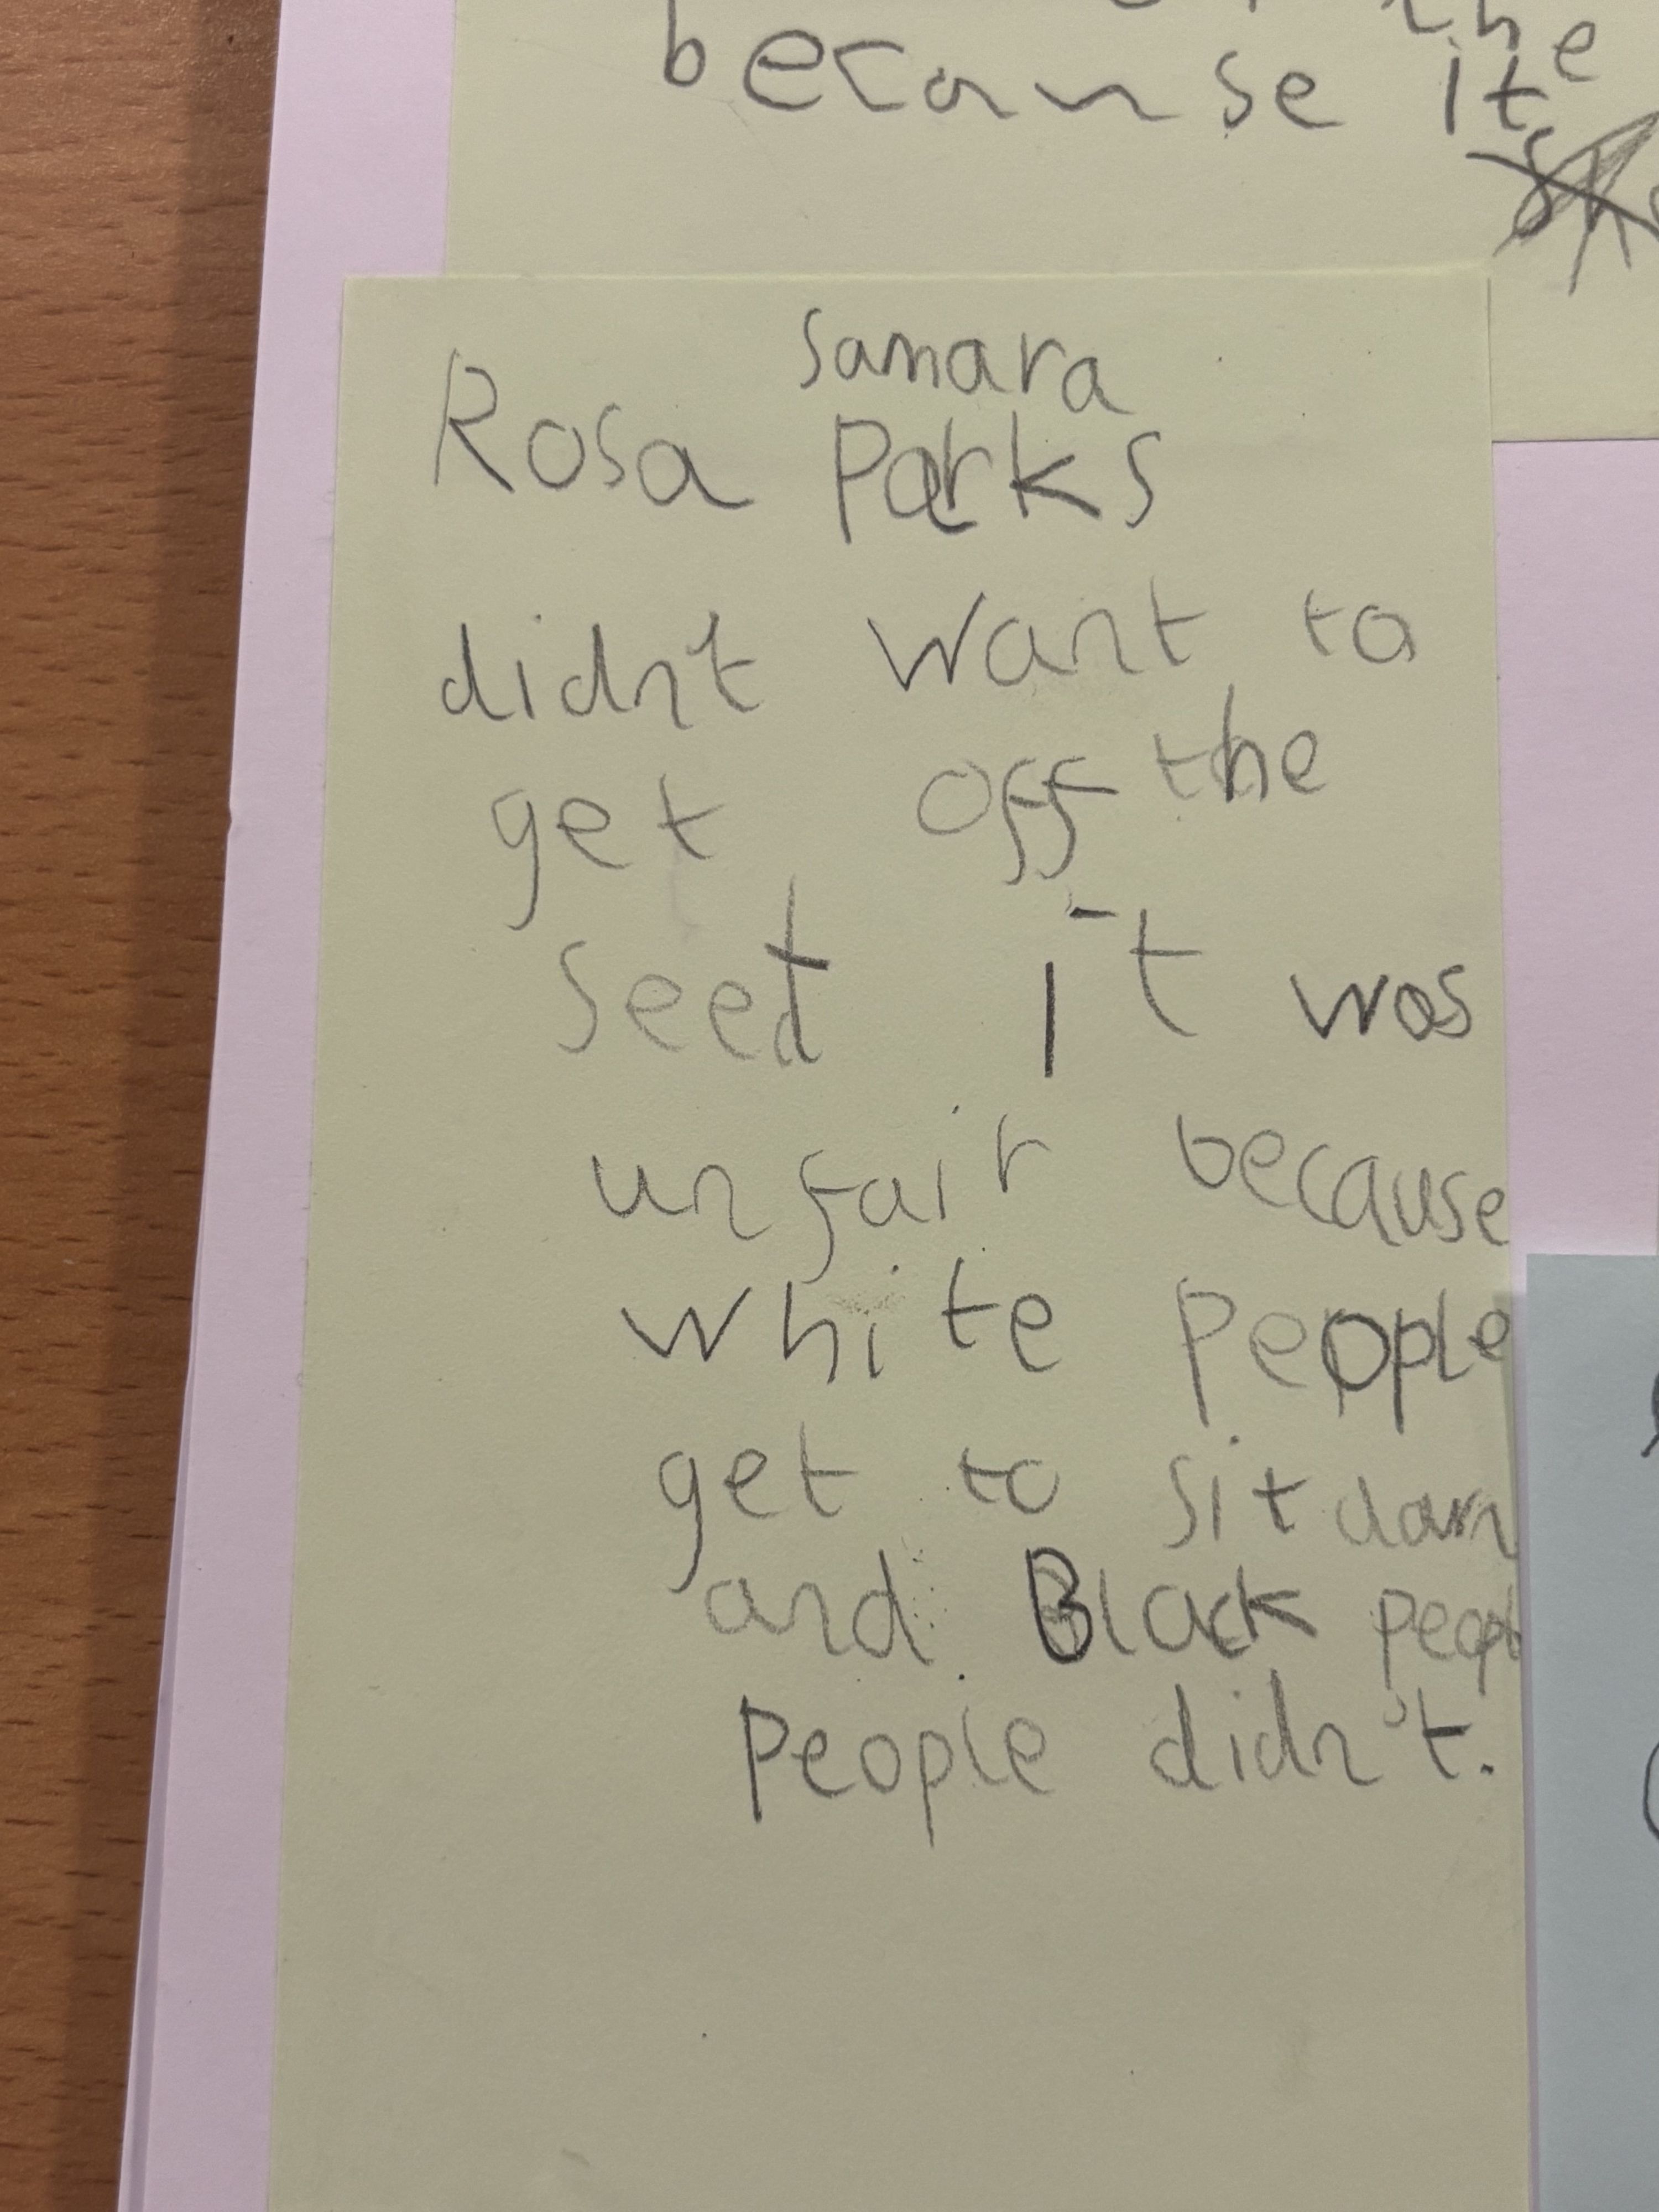 the
because its
Samara
Rosa Parks
didn't want to
get off the
seet it was
unfair because
white people
get to sit down
and Black peopl
people didn't.